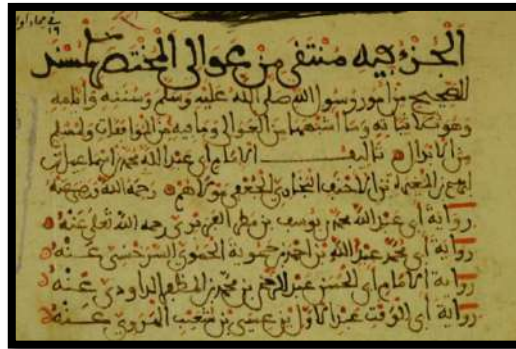 الجزء فيه منتقى من عوالي المختصر المسند
الصحيح من أمور رسول الله صلى الله عليه وسلم وسننه وأيامه
وهو ثلاثياته وما أشبهها من العوالي وما فيه من الموافقات
تأليف الإمام أبي عبد الله محمد بن إسماعيل بن
إبراهيم بن المغيرة بن الأحنف البخاري الجعفي مولاهم رحمه الله ورضي عنه
رواية أبي عبد الله محمد بن يوسف بن مطر الفربري رحمه الله تعلى عنه
رواية أبي محمد عبد الله بن أحمد بن حموية الحموي السرخسي عنه
رواية الإمام أبي الحسن عبد الرحمن بن محمد بن المظفر الداودي عنه
رواية أبي الوقت عبد الأول بن عيسى بن شعيب الهروي عنه